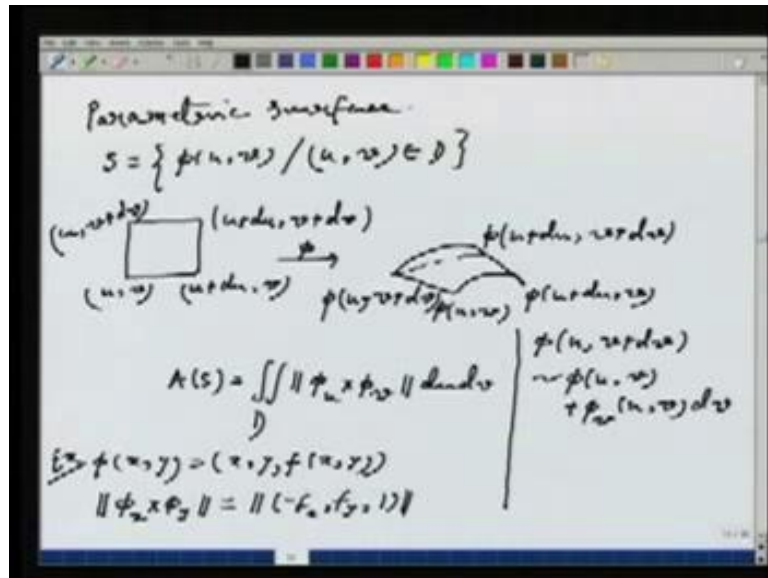 Parametric surface.
S = { φ(u, v) / (u, v) ∈ D }
(u, v+dv) (u+du, v+dv)
φ
φ(u+du, v+dv)
(u, v) (u+du, v)
φ(u, v+dv) φ(u, v) φ(u+du, v)
A(S) = ∬ || φ_u × φ_v || du dv
D
φ(u, v+dv)
~ φ(u, v)
+ φ_v (u, v) dv
Ex φ(x, y) = (x, y, f(x, y))
|| φ_x × φ_y || = || (-f_x, f_y, 1) ||